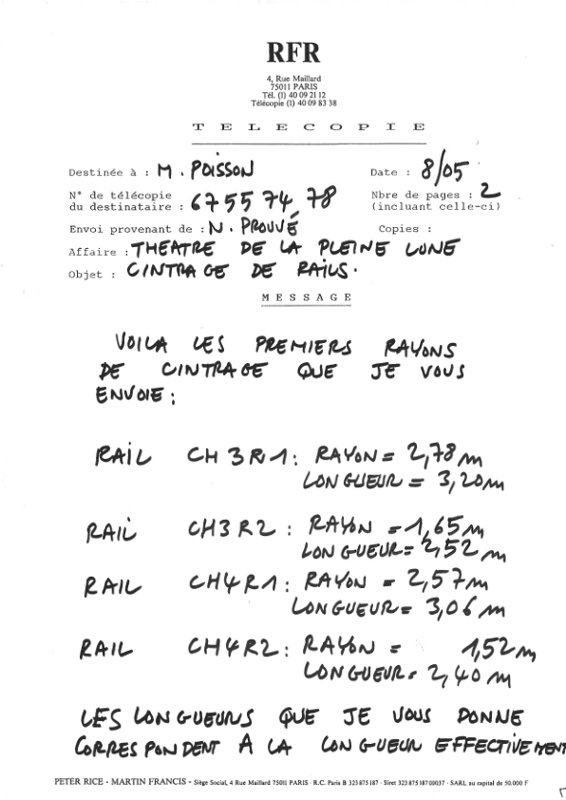 RFR
4, Rue Maillard
75011 PARIS
Tél. (1) 40 09 21 12
Télécopie (1) 40 09 83 38
TELECOPIE
Destinée à : M. POISSON
Date : 8/05
N° de télécopie
du destinataire : 67 55 74 78
Nbre de pages : 2
(incluant celle-ci)
Envoi provenant de : N. PROUVÉ
Copies :
Affaire : THEATRE DE LA PLEINE LUNE
Objet : CINTRAGE DE RAILS.
MESSAGE
VOILA LES PREMIERS RAYONS
DE CINTRAGE QUE JE VOUS
ENVOIE :
RAIL CH3R1 : RAYON = 2,78 m
LONGUEUR = 3,20 m
RAIL CH3R2 : RAYON = 1,65 m
LONGUEUR = 2,52 m
RAIL CH4R1 : RAYON = 2,57 m
LONGUEUR = 3,06 m
RAIL CH4R2 : RAYON = 1,52 m
LONGUEUR = 2,40 m
LES LONGUEURS QUE JE VOUS DONNE
CORRESPONDENT A LA LONGUEUR EFFECTIVEMENT
PETER RICE - MARTIN FRANCIS - Siège Social, 4 Rue Maillard 75011 PARIS - R.C. Paris B 323 875 187 - Siret 323 875 187 00037 - SARL au capital de 50.000 F